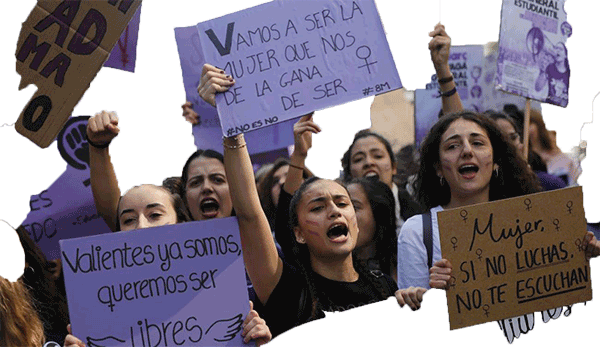 VAMOS A SER LA
MUJER QUE NOS
DE LA GANA
DE SER
#NO ES NO
#8M
ESTUDIANTIL
Valientes ya somos,
queremos ser
libres
Mujer,
SI NO LUCHAS,
NO TE ESCUCHAN